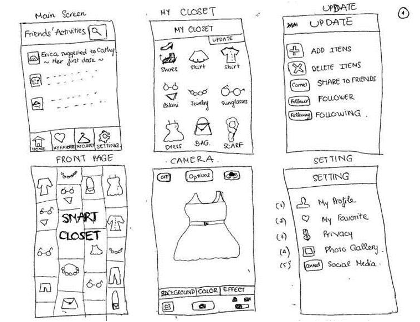 Main Screen
Friends' Activities
Erica suggested to Cathy
~ Her first date ~
HOME
MY CLOSET
SETTING
MY CLOSET
MY CLOSET
UPDATE
Shoes
Skirt
Shirt
Bikini
Jewelry
Sunglasses
DRESS
BAG
SCARF
UPDATE
UPDATE
ADD ITEMS
DELETE ITEMS
SHARE TO FRIENDS
Follower
FOLLOWER
Following
FOLLOWING
FRONT PAGE
SMART
CLOSET
CAMERA
Off
Options
BACKGROUND
COLOR
EFFECT
SETTING
SETTING
(1)
My Profile
(2)
My Favorite
(3)
Privacy
(4)
Photo Gallery
(5)
Social Media